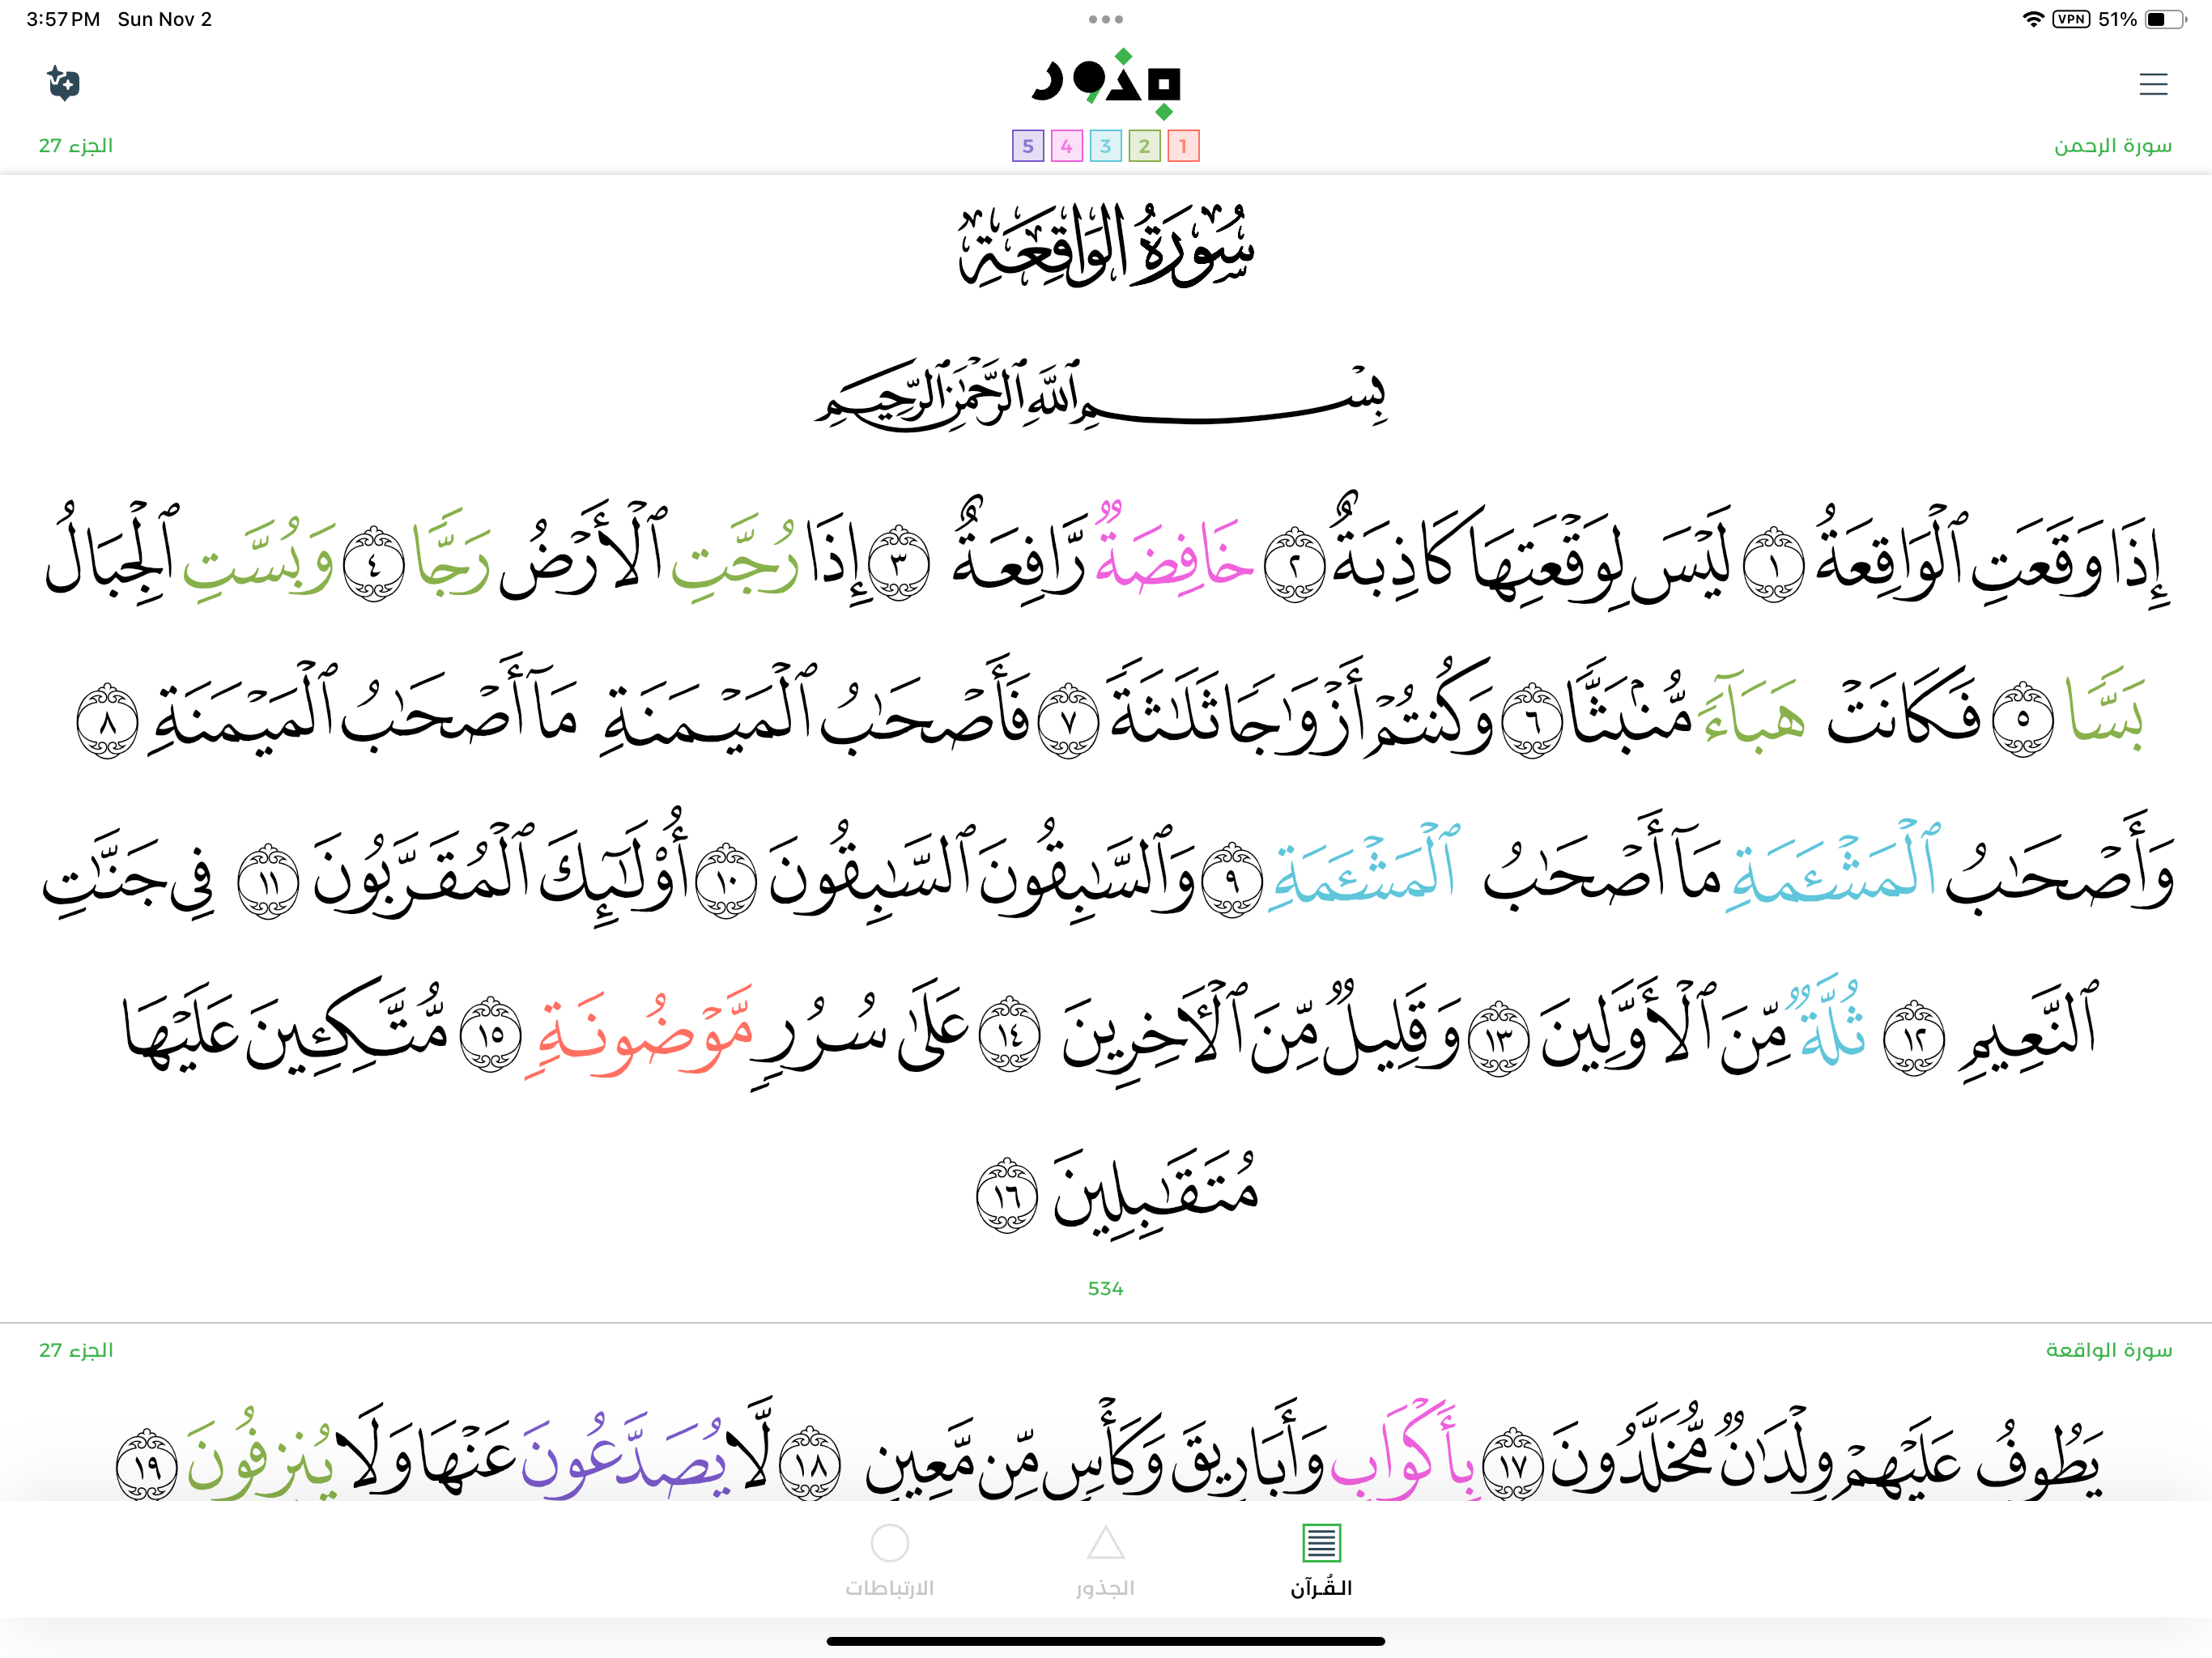 3:57 PM Sun Nov 2
VPN 51%
مجذور
1 2 3 4 5
سورة الرحمن
الجزء 27
سُورَةُ الوَاقِعَةِ
بِسْمِ ٱللَّهِ ٱلرَّحْمَٰنِ ٱلرَّحِيمِ
إِذَا وَقَعَتِ ٱلْوَاقِعَةُ ١ لَيْسَ لِوَقْعَتِهَا كَاذِبَةٌ ٢ خَافِضَةٌ رَّافِعَةٌ ٣ إِذَا رُجَّتِ ٱلْأَرْضُ رَجًّا ٤ وَبُسَّتِ ٱلْجِبَالُ
بَسًّا ٥ فَكَانَتْ هَبَآءً مُّنۢبَثًّا ٦ وَكُنتُمْ أَزْوَٰجًا ثَلَٰثَةً ٧ فَأَصْحَٰبُ ٱلْمَيْمَنَةِ مَآ أَصْحَٰبُ ٱلْمَيْمَنَةِ ٨
وَأَصْحَٰبُ ٱلْمَشْـَٔمَةِ مَآ أَصْحَٰبُ ٱلْمَشْـَٔمَةِ ٩ وَٱلسَّٰبِقُونَ ٱلسَّٰبِقُونَ ١٠ أُو۟لَٰٓئِكَ ٱلْمُقَرَّبُونَ ١١ فِى جَنَّٰتِ
ٱلنَّعِيمِ ١٢ ثُلَّةٌ مِّنَ ٱلْأَوَّلِينَ ١٣ وَقَلِيلٌ مِّنَ ٱلْـَٔاخِرِينَ ١٤ عَلَىٰ سُرُرٍ مَّوْضُونَةٍ ١٥ مُّتَّكِـِٔينَ عَلَيْهَا
مُتَقَٰبِلِينَ ١٦
534
سورة الواقعة
الجزء 27
يَطُوفُ عَلَيْهِمْ وِلْدَٰنٌ مُّخَلَّدُونَ ١٧ بِأَكْوَابٍ وَأَبَارِيقَ وَكَأْسٍ مِّن مَّعِينٍ ١٨ لَّا يُصَدَّعُونَ عَنْهَا وَلَا يُنزِفُونَ ١٩
القُرآن
الجذور
الارتباطات